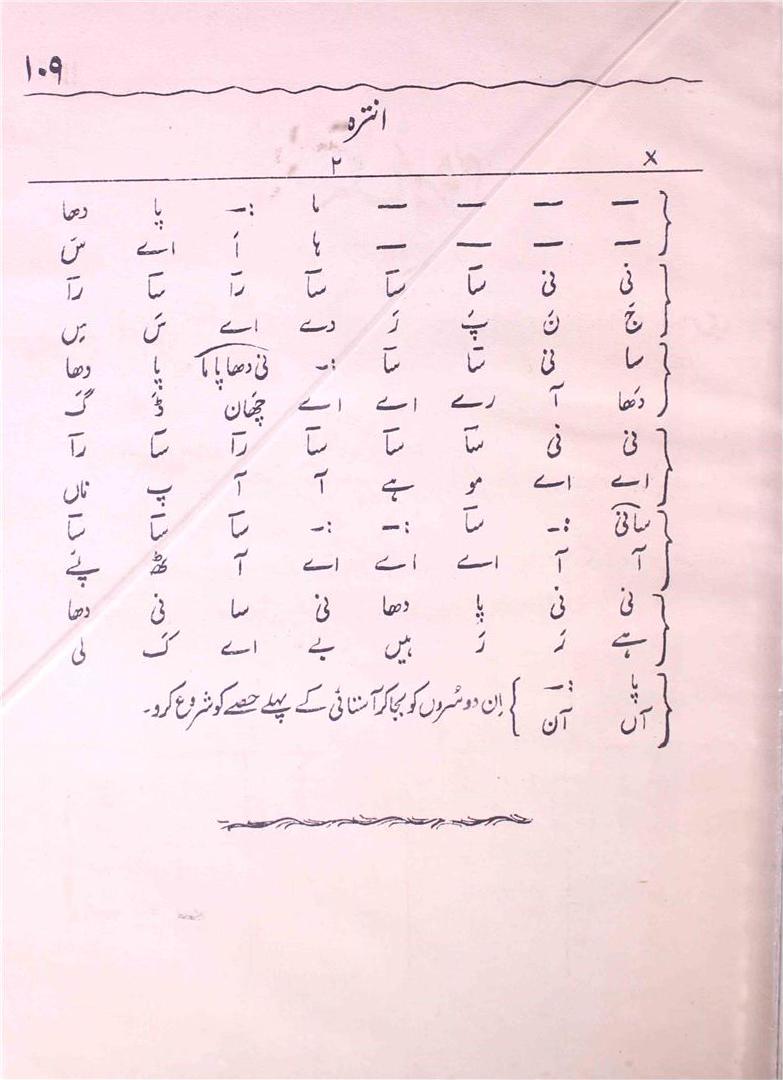 ۱۰۹
انترہ
× ۲
— — — — ما :- پا دھا
— — — — ہا اَ اے سَ
نی نی سا سا سا را سا را
جَ نَ پَ رَ دے اے سَ یں
سا نی سا سا :- نی دھا پا ما پا دھا
دَھا آ رے اے اے چھان ڈَ گَ
نی نی سا سا سا را سا را
اے اے مو ہے آ آ پ ناں
سا نی :- سا :- :- سا سا سا
آ آ اے اے اے آ ٹھ پئے
نی نی پا دھا نی سا نی دھا
ہے رَ رَ ہیں بے اے کَ لی
پا :-
آں آن } اِن دو سُروں کو بجا کر آستائی کے پہلے حصے کو شروع کرو۔